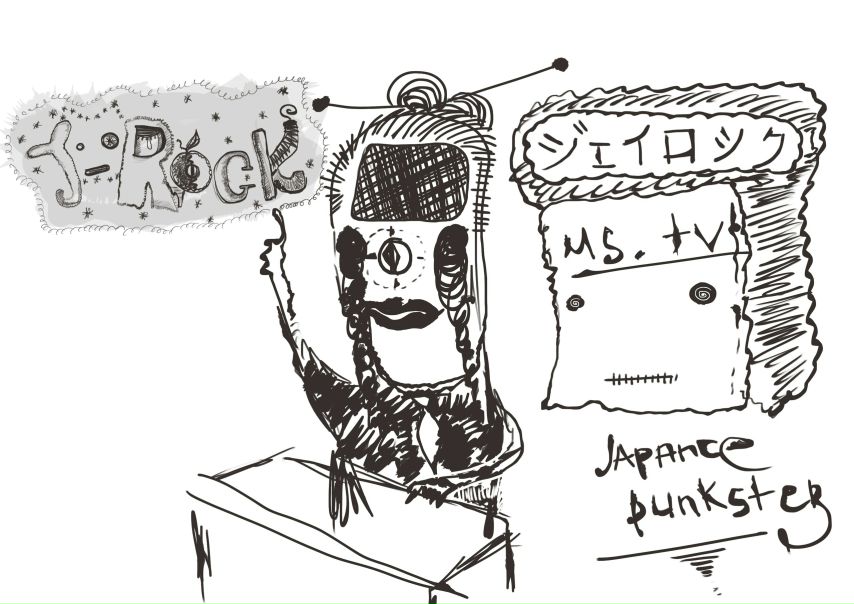 J-Rock
ジェイロック
MS. tv
JAPANCE
punkster